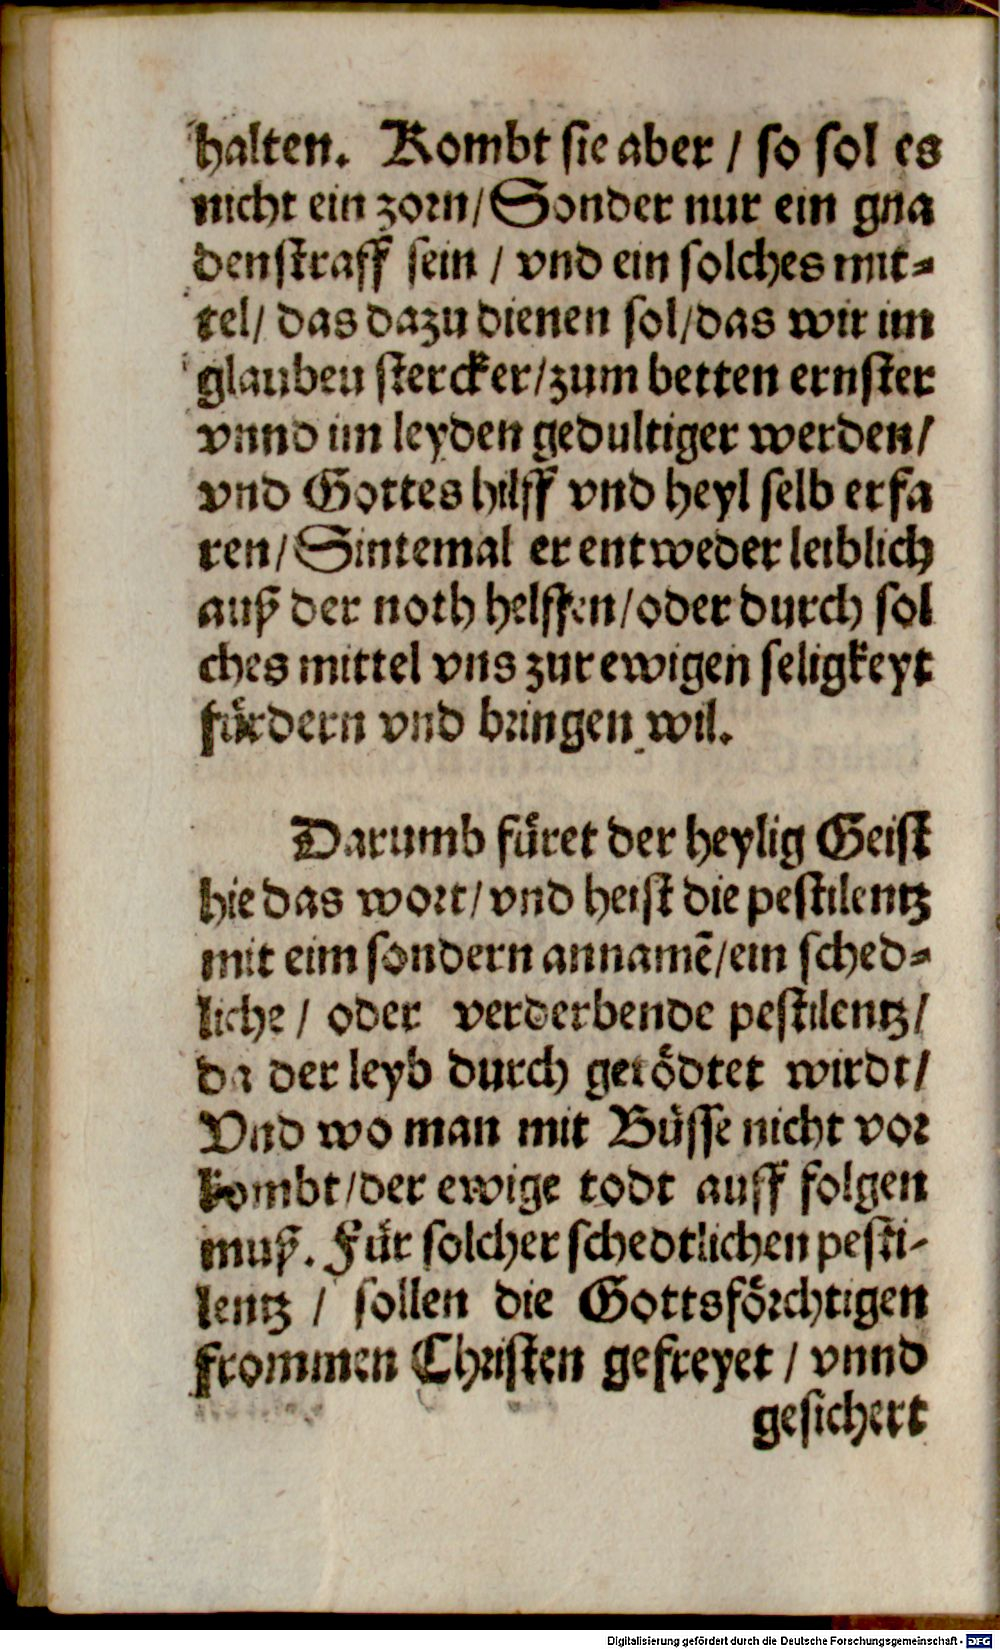 halten. Kombt sie aber / so sol es
nicht ein zorn/ Sonder nur ein gna
denstraff sein / vnd ein solches mit-
tel/ das dazu dienen sol/das wir im
glauben stercker/zum betten ernster
vnnd im leyden gedultiger werden/
vnd Gottes hilff vnd heyl selb erfa
ren/ Sintemal er entweder leiblich
auß der noth helffen/oder durch sol
ches mittel vns zur ewigen seligkeyt
fürdern vnd bringen wil.
Darumb füret der heylig Geist
hie das wort/ vnd heist die pestilentz
mit eim sondern annamē/ein sched-
liche / oder verderbende pestilentz/
da der leyb durch getödtet wirdt/
Vnd wo man mit Büsse nicht vor
kombt/der ewige todt auff folgen
muß. Für solcher schedtlichen pesti-
lentz / sollen die Gottsförchtigen
frommen Christen gefreyet / vnnd
gesichert
Digitalisierung gefördert durch die Deutsche Forschungsgemeinschaft - DFG